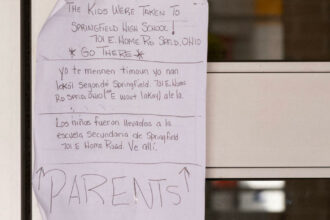 THE KIDS WERE TAKEN TO
SPRINGFIELD HIGH SCHOOL!
701 E. HOME RD SPFLD, OHIO
* GO THERE *
yo te mennen timoun yo nan
lekòl segondè Springfield. 701 E. Home
Rd SPFLD, OHIO (E wout lakay) ale la.
Los niños fueron llevados a la
escuela secundaria de Springfield
701 E Home Road. Ve allí.
↑PARENTS↑